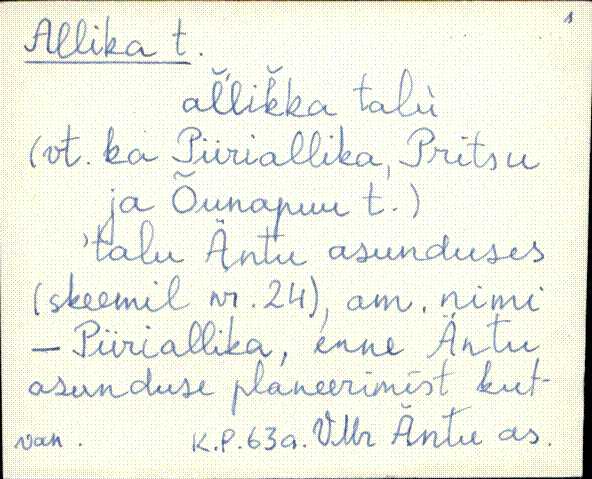 1
Allika t.
al̆lik̆ka talù
(vt. ka Piiriallika, Pritsu
ja Õunapuu t.)
'talu Äntu asunduses
(skeemil nr. 24), am. nimi
– Piiriallika, enne Äntu
asunduse planeerimist kut-
van. K.P. 63a. VMr Äntu as.